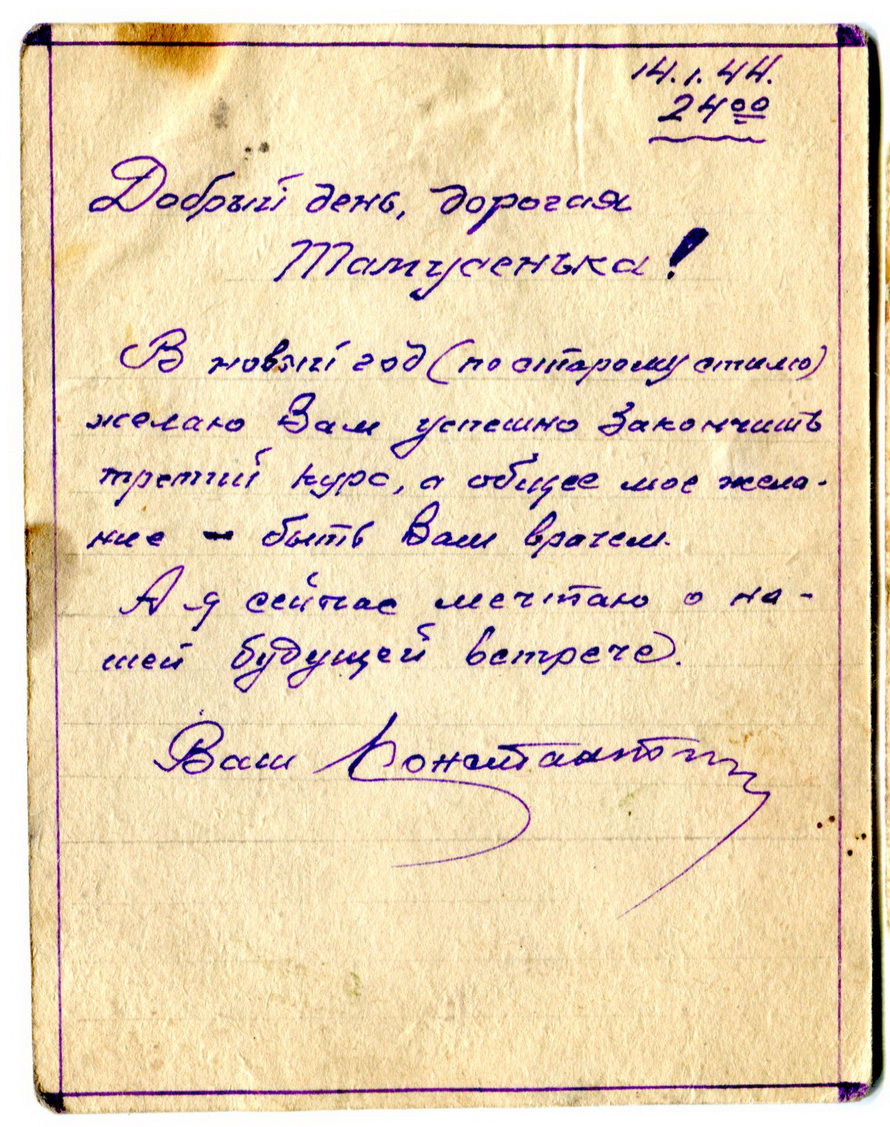 14.1.44.
24 00
Добрый день, дорогая
Тамусенька!
В новый год (по старому стилю)
желаю Вам успешно закончить
третий курс, а общее мое жела-
ние - быть Вам врачем.
А я сейчас мечтаю о на-
шей будущей встрече.
Ваш Константин